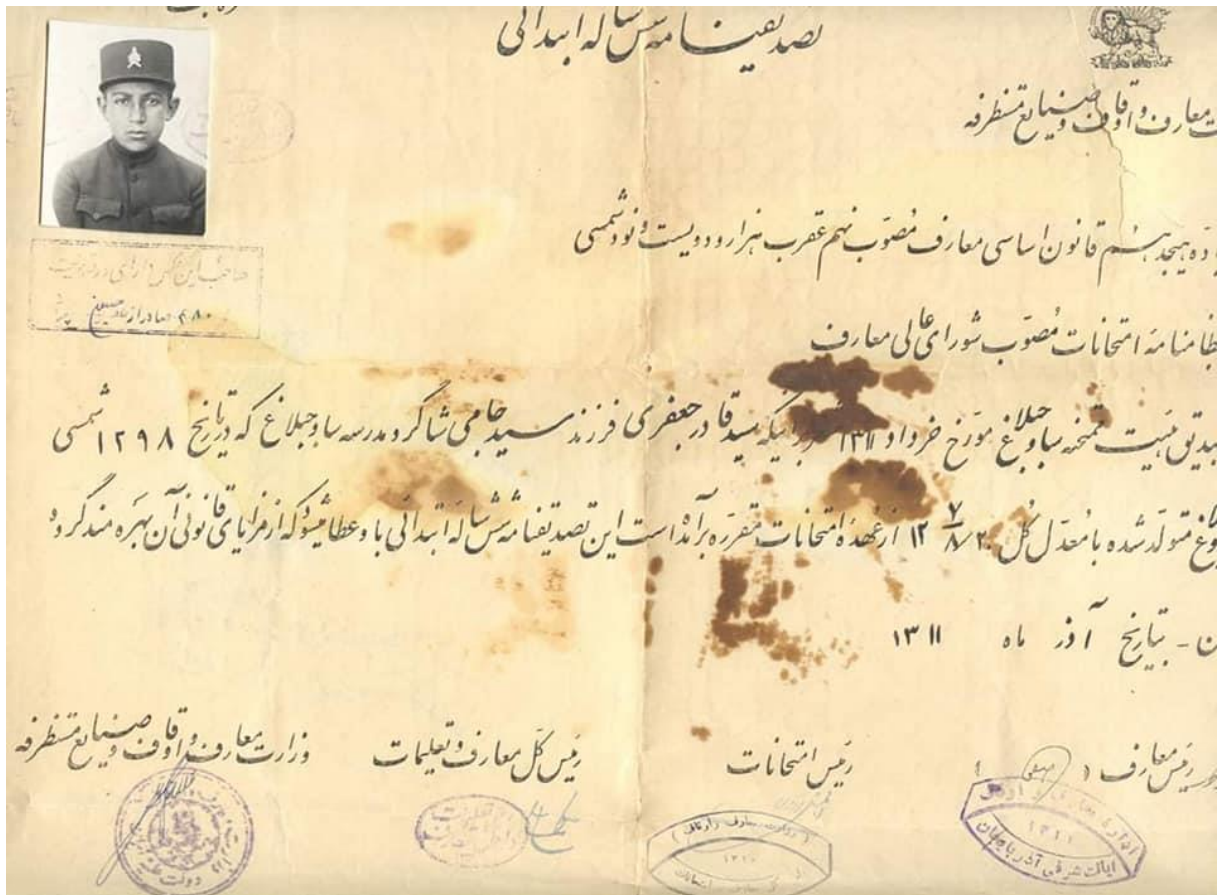 تصدیقنامه شش ساله ابتدائی
معارف و اوقاف و صنایع مستظرفه
هیجدهم قانون اساسی معارف مصوب نهم عقرب هزار و دویست و نود شمسی
امتحانات مصوب شورای عالی معارف
صاحب این عکس دارای
صادر از
هیئت ممتحنه ساوجبلاغ مورخ خرداد ۱۳۱۱ سید قادر جعفری فرزند سید حامی شاگرد مدرسه ساوجبلاغ که در تاریخ ۱۲۹۸ شمسی
متولد شده با معدل کل ۱۲ از عهده امتحانات مقرره برآمده است این تصدیقنامه شش ساله ابتدائی باو عطا میشود که از مزایای قانونی آن بهره مند گردد
بتاریخ آذر ماه ۱۳۱۱
رئیس معارف
رئیس امتحانات
رئیس کل معارف و تعلیمات
وزارت معارف و اوقاف و صنایع مستظرفه
اداره معارف و اوقاف
۱۳۱۱
ایالت شرقی آذربایجان
وزارت معارف و اوقاف
دولت علیه